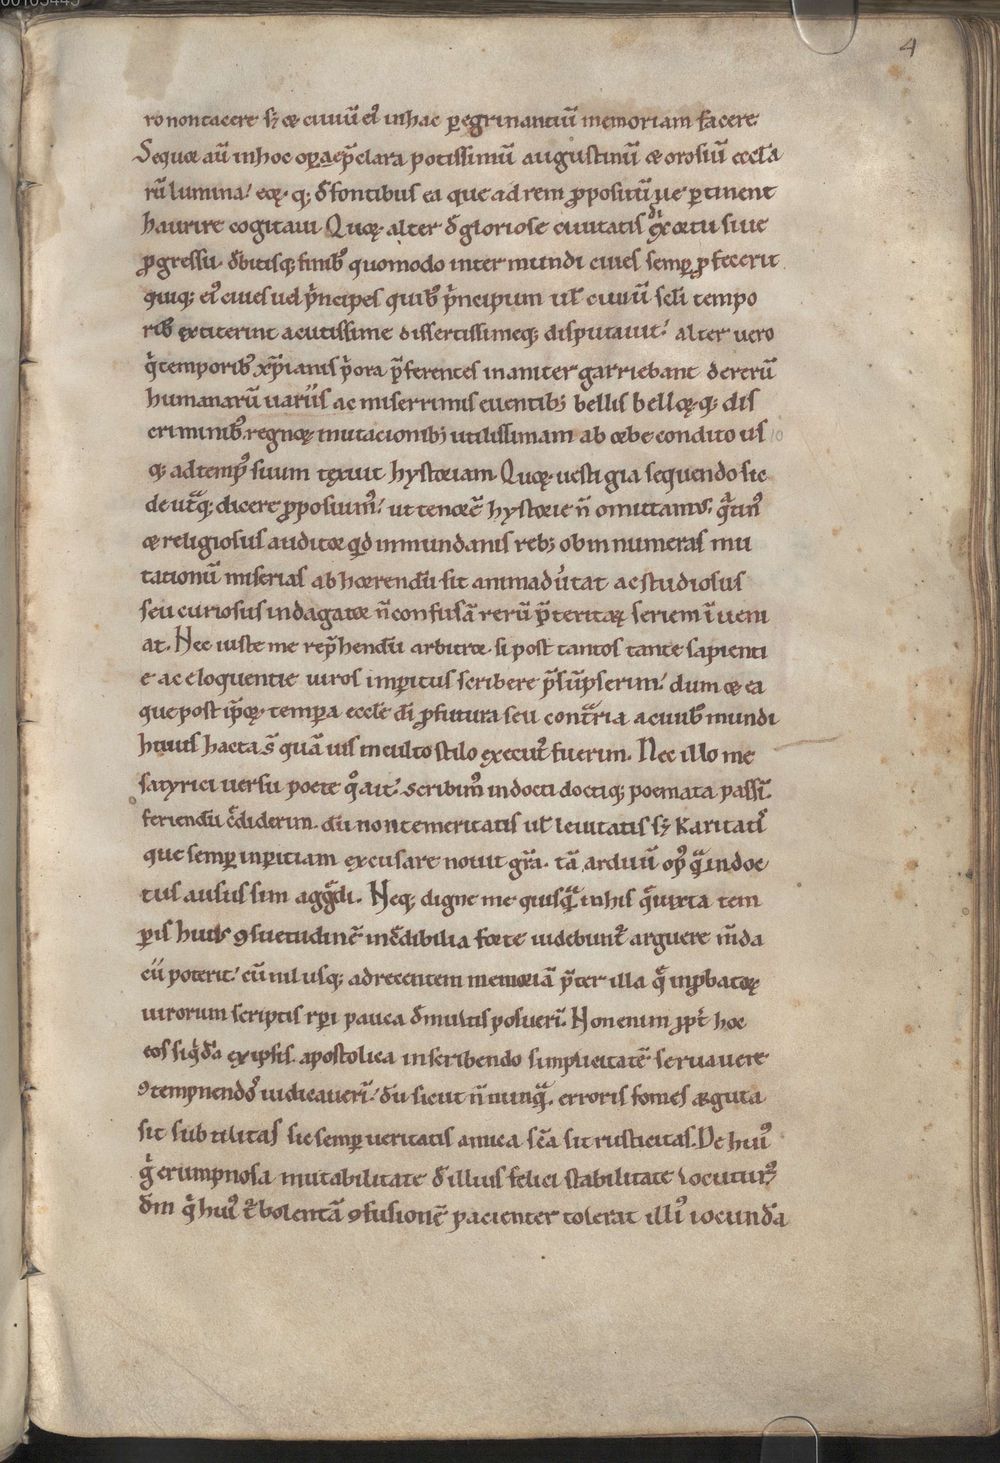 4
ro non tacere sꝫ & ciuiū ei᷒ in hac ꝑegrinantiū memoriam facere
Sequor aū in hoc oꝑa p̄clara potissimū augustinū & orosiū eccl̄a
rū lumina; eoꝝ·qꝫ đ fontibus ea que ad rem ꝓpositū ue ꝑtinent
haurire cogitaui. Quoꝝ alter đ gloriose ciuitatis đi exortu siue
ꝓgressu đbitisqꝫ finib᷒ quomodo inter mundi ciues semꝑ ꝓfecerit
quiqꝫ ei᷒ ciues uel p̄ncipes quib᷒ p̄ncipum ul̄ ciuiū scl̄i tempo
rib᷒ extiterint acutissime dissertissimeqꝫ disputauit; alter uero
q̄ temporib᷒ xp̄ianis p̄ora p̄ferentes inaniter garriebant de rerū
humanarū uariis ac miserrimis euentibꝫ bellis belloꝝ·qꝫ dis
criminib᷒ regnoꝝ mutacionibꝫ utilissimam ab orbe condito us
10
qꝫ ad temp᷒ suum texuit hystoriam. Quoꝝ uestigia sequendo sic
de utq̄ꝫ dicere ꝓposuim᷒; ut tenorē hystorie n̄ omittam᷒, q̄tin᷒
& religiosus auditor qđ in mundanis rebꝫ ob innumeras mu
tationū miserias abhorrendū sit animaduertat ac studiosus
seu curiosus indagator n̄ confusā rerū p̄teritaꝝ seriem īueni
at. Nec iuste me rep̄hendū arbitror si post tantos tante sapienti
e ac eloquentie uiros imꝑitus scribere p̄sūpserim; dum & ea
que post ip̄oꝝ tempora eccl̄e đi ꝓfutura seu contraria a ciuib᷒ mundi
huius hacta s̄ quāuis inculto stilo executus fuerim. Nec illo me
satyrici uersu poete q̊ ait; Scribim᷒ indocti doctiqꝫ poemata passī.
feriendū c̄diderim. dū non temeritatis ul̄ leuitatis sꝫ karitatis
que semꝑ inꝑitiam excusare nouit gr̄a. tā arduū op᷒ q̄ indoc
tus ausus sim agḡdi. Neqꝫ digne me quisq̄ in his q̄ iuxta tem
ꝑis huius ꝯsuetudinē inc̄dibilia forte uidebunt᷒ arguere m̄da
cii poterit; cū nil usqꝫ ad recentem memoriā p̄ter illa q̄ inꝓbatoꝝ
uirorum scriptis rꝑi pauca đ multis posueri. Non enim ꝓpt̄ hoc
eos siq̄đa ex ipsis apostolica in scribendo simplicitatē seruauere
ꝯtempnendos iudicauerī; dū sicut n̄ nunq̄ erroris fomes arguta
sit subtilitas sic semꝑ ueritatis amica sc̄a sit rusticitas. De hui᷒
g̊ erumpnosa mutabilitate đ illius felici stabilitate locuturꝰ
đm q̄ hui᷒ t᷒bolentā ꝯfusionē pacienter tolerat illi᷒ iocunda